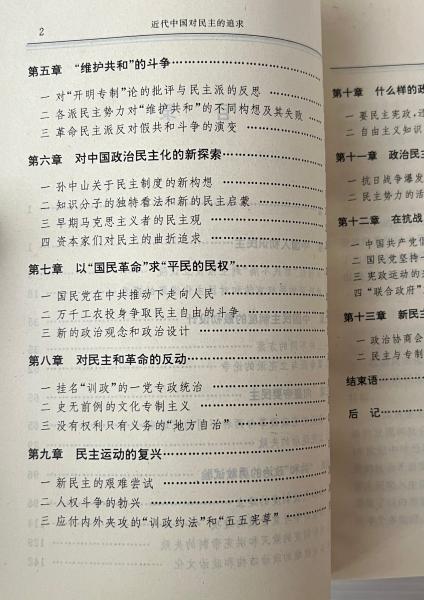 2
近代中国对民主的追求
第五章 “维护共和”的斗争
一 对“开明专制”论的批评与民主派的反思
二 各派民主势力对“维护共和”的不同构想及其失败
三 革命民主派反对假共和斗争的演变
第六章 对中国政治民主化的新探索
一 孙中山关于民主制度的新构想
二 知识分子的独特看法和新的民主启蒙
三 早期马克思主义者的民主观
四 资本家们对民主的曲折追求
第七章 以“国民革命”求“平民的民权”
一 国民党在中共推动下走向人民
二 万千工农投身争取民主自由的斗争
三 新的政治观念和政治设计
第八章 对民主和革命的反动
一 挂名“训政”的一党专政统治
二 史无前例的文化专制主义
三 没有权利只有义务的“地方自治”
第九章 民主运动的复兴
一 新民主的艰难尝试
二 人权斗争的勃兴
三 应付内外夹攻的“训政约法”和“五五宪草”
第十章 什么样的政
一 要民主宪政，还
二 自由主义知识
第十一章 政治民主
一 抗日战争爆发
二 民主势力的活
第十二章 在抗战
一 中国共产党倡
二 国民党坚持一
三 宪政运动的
四 “联合政府”
第十三章 新民主
一 政治协商会
二 民主与专制
结束语
后 记